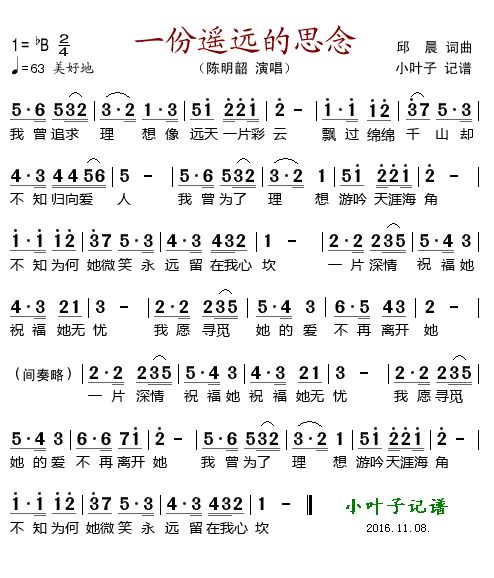 一份遥远的思念
1=♭B 2/4
♩=63 美好地
（陈明韶 演唱）
邱 晨 词曲
小叶子 记谱
5·6 532 | 3·2 1·3 | 51 221 | 1·1 12 | 37 5·3 |
我曾追求 理 想像远天一片彩云 飘过绵绵千山却
4·3 4456 | 5 - | 5·6 532 | 3·2 1·3 | 51 221 |
不知归向爱 人 我曾为了 理 想游吟天涯海角
1·1 12 | 37 5·3 | 4·3 432 | 1 - | 2·2 235 | 5·4 3 |
不知为何她微笑永远留在我心坎 一片深情祝福她
4·3 21 | 3 - | 2·2 235 | 5·4 3 | 6·5 43 | 2 - |
祝福她无忧 我愿寻觅 她的爱 不再离开她
（间奏略） | 2·2 235 | 5·4 3 | 4·3 21 | 3 - | 2·2 235 |
一片深情祝福她祝福她无忧 我愿寻觅
5·4 3 | 6·6 71 | 2 - | 5·6 532 | 3·2 1·3 | 51 221 |
她的爱 不再离开她 我曾为了 理 想游吟天涯海角
1·1 12 | 37 5·3 | 4·3 432 | 1 - ‖
不知为何她微笑永远留在我心坎
小叶子记谱
2016.11.08.